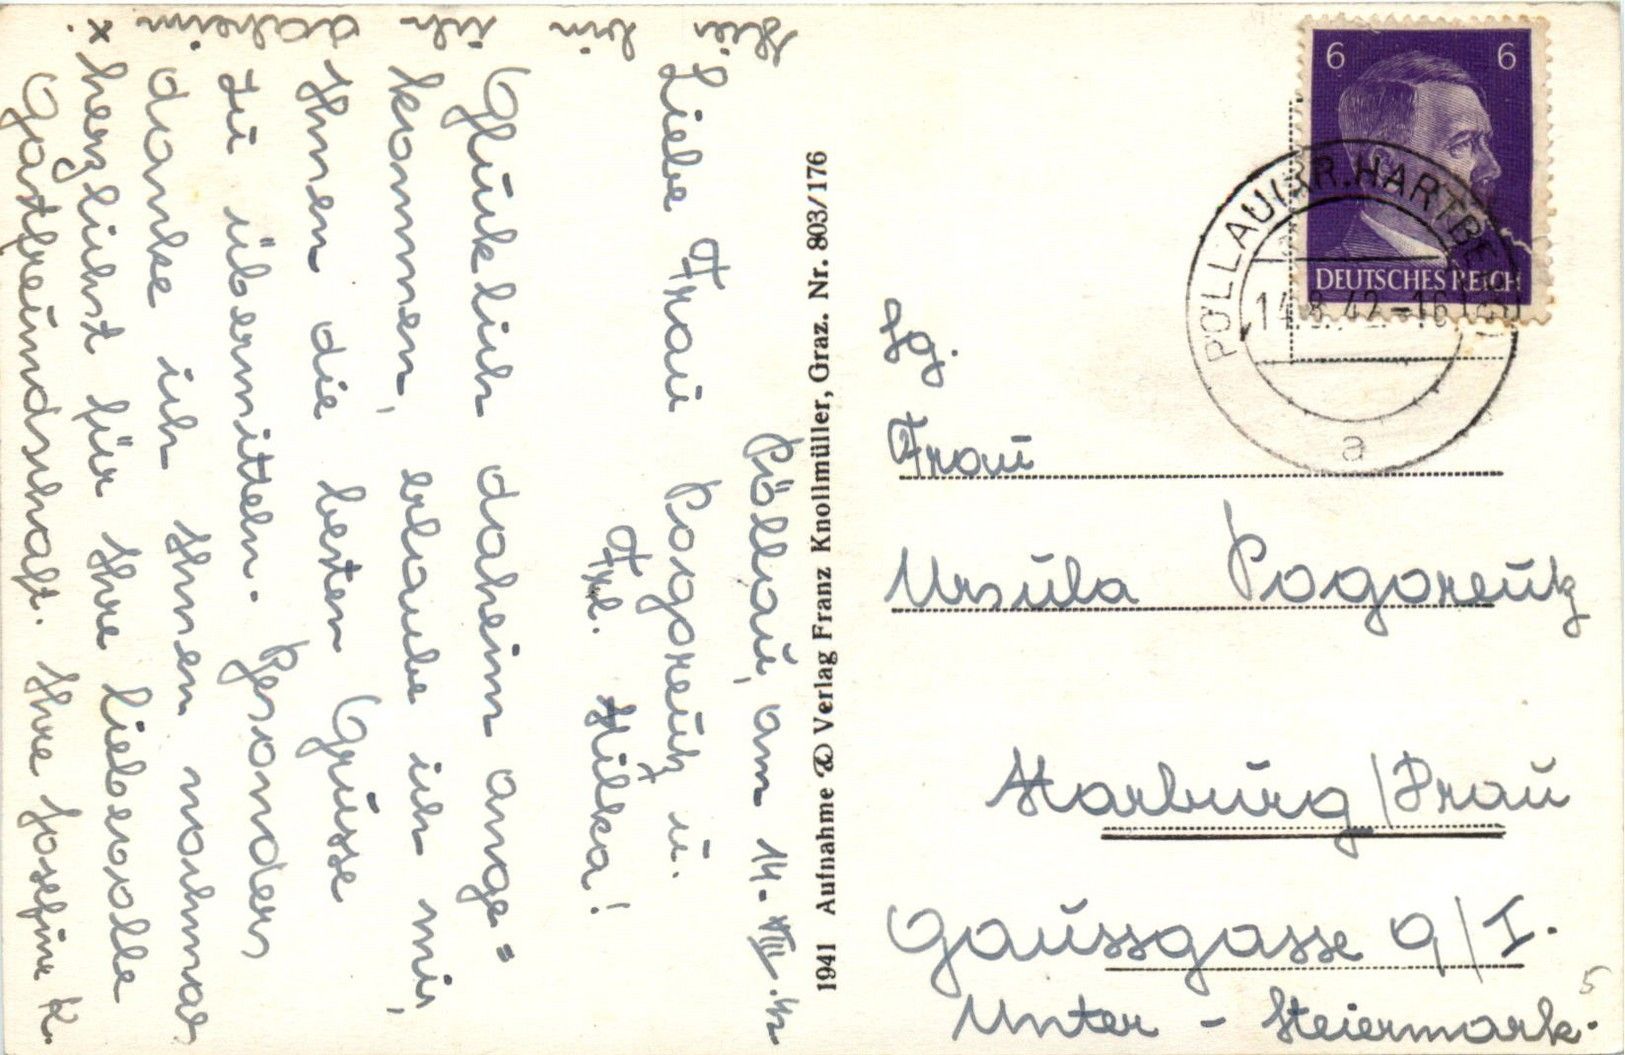 Pöllau, am 14. VIII. 42
Liebe Frau Pogoreutz u.
Frl. Hilka!
Glücklich daheim ange=
kommen, erlaube ich mir,
Ihnen die besten Grüsse
zu übermitteln. Besonders
danke ich Ihnen nochmals
herzlichst für Ihre liebevolle
Gastfreundschaft. Ihre Josefine K.
Hier bin ich daheim x.
1941 Aufnahme & Verlag Franz Knollmüller, Graz. Nr. 803/176
6 6
DEUTSCHES REICH
PÖLLAU (KR. HARTBERG
14.8.42-16
a
Frau
Ursula Pogoreutz
Marburg/Drau
Gaussgasse 9/I.
Unter-Steiermark.
5